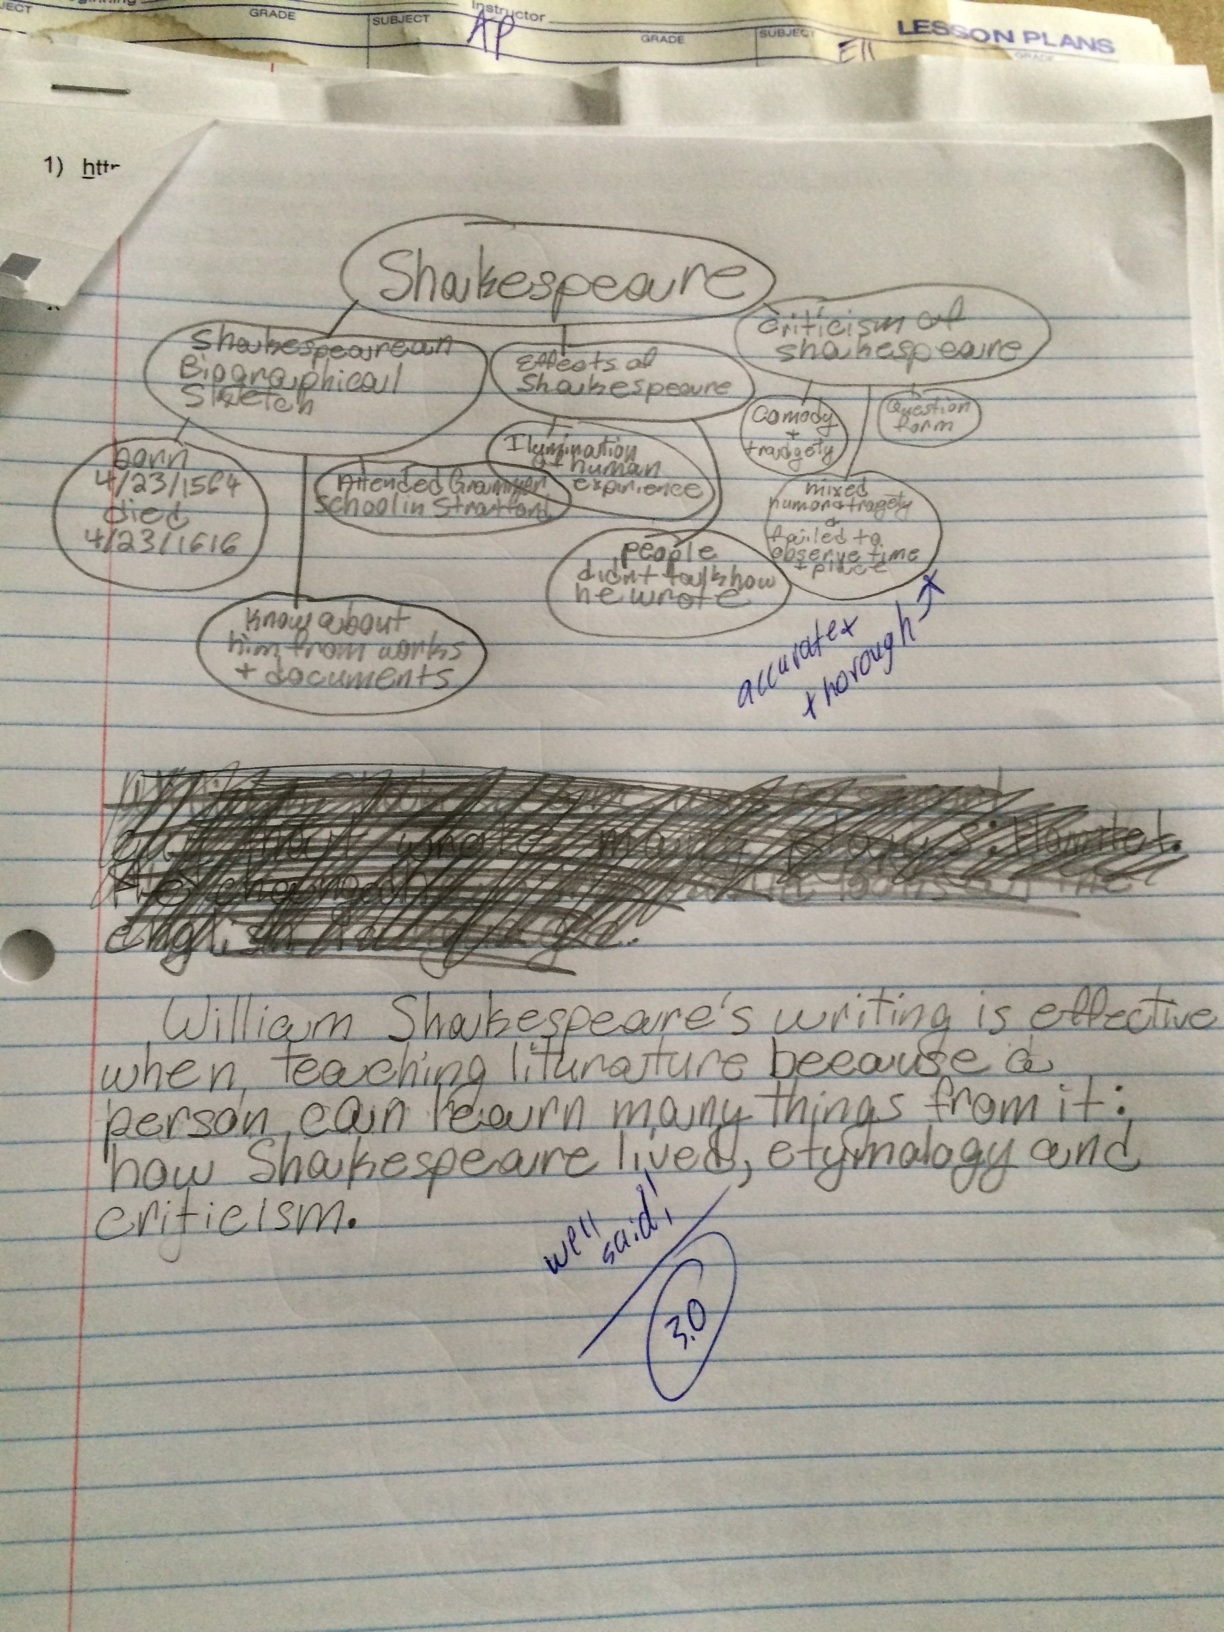 GRADE
SUBJECT
Instructor
AP
GRADE
SUBJECT
LESSON PLANS
GRADE
1) http
Shakespeare
Shakespearean
Biographical
Sketch
Effects of
Shakespeare
criticism of
shakespeare
born
4/23/1564
died
4/23/1616
Attended Grammer
School in Stratford
Know about
him from works
+ documents
Ilumination
+ human
expirience
people
didnt talk how
he wrote
Comody
+
tradgety
Question
form
mixed
humor + tragety
+
failed to
observe time
+ place
accurate +
thorough
many plays: Hamlet.
He changed
english
William Shakespeare's writing is effective
when teaching liturature because a
person can learn many things from it:
how Shakespeare lived, etymology and
criticism.
well
said!
3.0